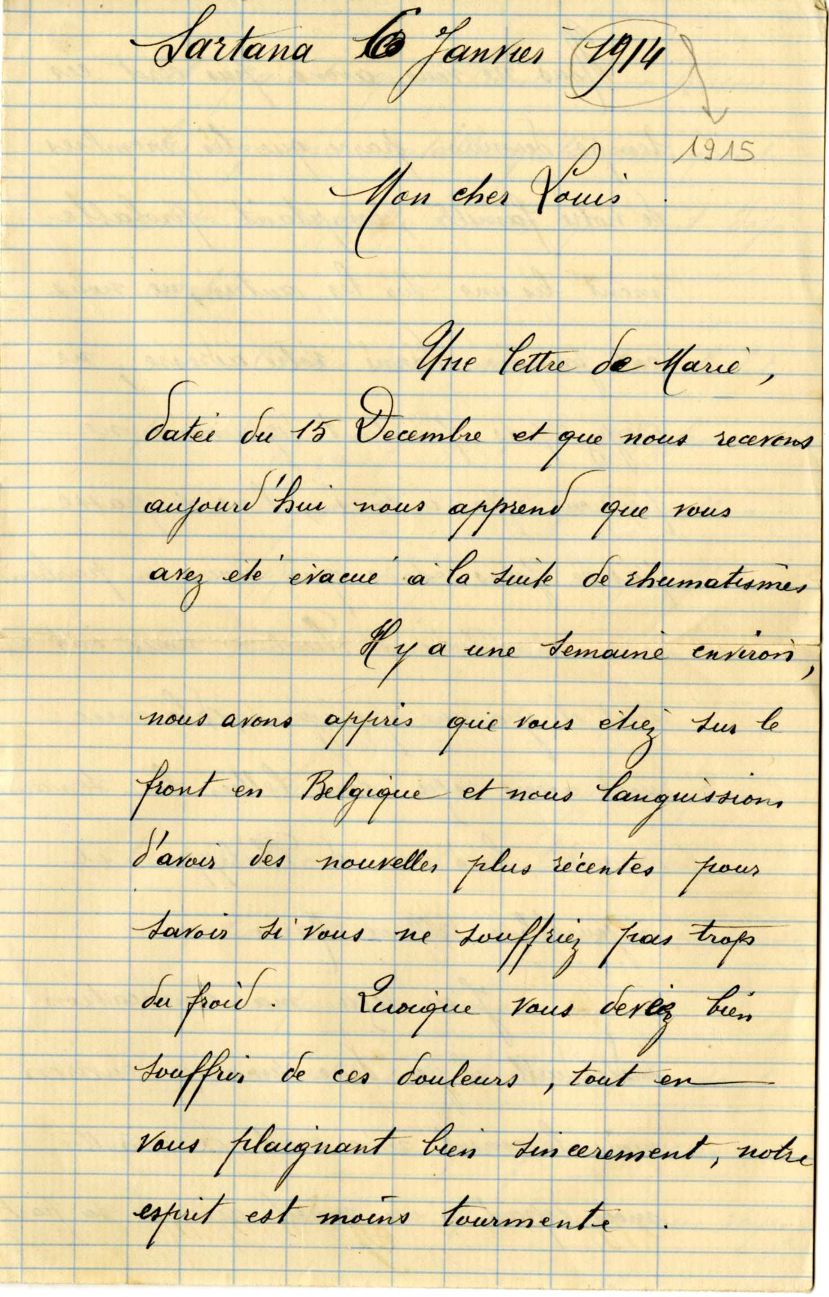 Sartana 6 Janvier 1914
1915
Mon cher Louis.
Une lettre de Marie,
datée du 15 Decembre et que nous recevons
aujourd'hui nous apprend que vous
avez été évacué à la suite de rhumatismes
Il y a une semaine environ,
nous avons appris que vous étiez sur le
front en Belgique et nous languissions
d'avoir des nouvelles plus récentes pour
savoir si vous ne souffriez pas trop
du froid. Quoique vous deviez bien
souffrir de ces douleurs, tout en
vous plaignant bien sincerement, notre
esprit est moins tourmente.